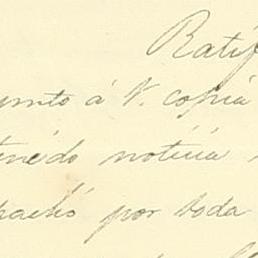 Ratif
unto á V. copia
tenido noticia
pachó por toda